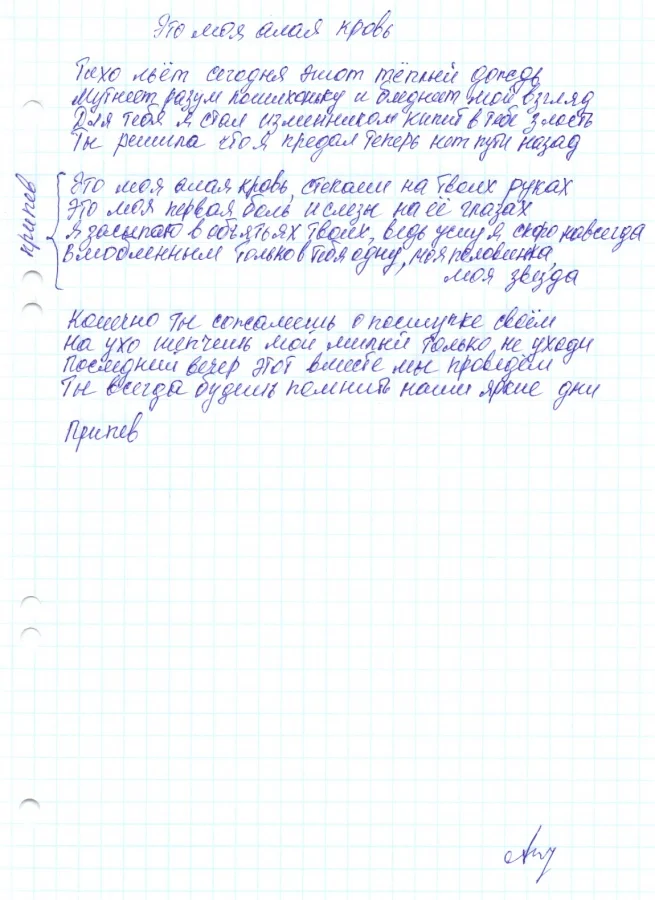 Это моя алая кровь
Тихо льёт сегодня этот тёплый дождь
Мутнеет разум потихоньку и бледнеет мой взгляд
Для тебя я стал изменником кипит в тебе злость
Ты решила что я предал теперь нет пути назад
припев
Это моя алая кровь, стекает на твоих руках
Это моя первая боль, и слёзы на её глазах
Я засыпаю в объятьях твоих, ведь усну я скоро навсегда
Влюбленным только в тебя одну, моя половинка,
моя звезда
Конечно ты сожалеешь о поступке своём
На ухо шепчешь мой милый только не уходи
Последний вечер этот вместе мы проведём
Ты всегда будешь помнить наши яркие дни
Припев